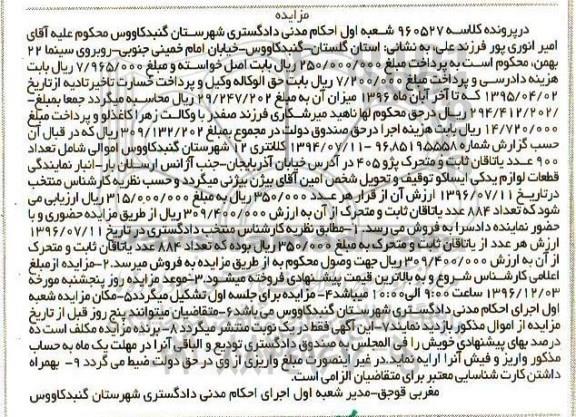 مزایده
درپرونده کلاسه ۹۶۰۵۲۷ شعبه اول احکام مدنی دادگستری شهرستان گنبدکاووس محکوم علیه آقای
امیر انوری پور فرزند علی به نشانی: استان گلستان-گنبدکاووس-خیابان امام خمینی جنوبی-روبروی سینما ۲۲
بهمن، محکوم است به پرداخت مبلغ ۲۵۰/۰۰۰/۰۰۰ ریال بابت اصل خواسته و مبلغ ۷/۹۶۵/۰۰۰ ریال بابت
هزینه دادرسی و پرداخت مبلغ ۷/۲۰۰/۰۰۰ ریال بابت حق الوکاله وکیل و پرداخت خسارت تاخیرتادیه از تاریخ
۱۳۹۵/۰۴/۰۲ که تا آخر آبان ماه ۱۳۹۶ میزان آن به مبلغ ۲۹/۲۴۷/۲۰۲ ریال محاسبه میگردد جمعا بمبلغ-
/۲۹۴/۴۱۲/۲۰۲ ریال درحق محکوم لها ناهید میرشکاری فرزند صفدر با وکالت زهرا کاغذلو و پرداخت مبلغ
۱۴/۷۲۰/۰۰۰ ریال بابت هزینه اجرا درحق صندوق دولت در مجموع بمبلغ ۳۰۹/۱۳۲/۲۰۲ ریال که در قبال آن
حسب گزارش شماره ۹۶۸۵۱۹۵۵۵۸۰-۱۳۹۴/۰۷/۱۱ کلانتری ۱۲ شهرستان گنبدکاووس اموالی شامل تعداد
۹۰۰ عدد یاتاقان ثابت و متحرک پژو ۴۰۵ در آدرس خیابان آذربایجان-جنب آژانس ارسلان یار-انبار نمایندگی
قطعات لوازم یدکی ایساکو توقیف و تحویل شخص امین آقای بیژن بیژنی میگردد و حسب نظریه کارشناس منتخب
درتاریخ ۱۳۹۶/۰۷/۱۱ ارزش آن از قرار هر عدد ۳۵۰/۰۰۰ ریال به مبلغ ۳۱۵/۰۰۰/۰۰۰ ریال ارزیابی می
شود که تعداد ۸۸۴ عدد یاتاقان ثابت و متحرک از آن به ارزش ۳۰۹/۴۰۰/۰۰۰ ریال از طریق مزایده حضوری و با
حضور نماینده دادسرا به فروش می رسد. ۱-مطابق نظریه کارشناس منتخب دادگستری در تاریخ ۱۳۹۶/۰۷/۱۱
ارزش هر عدد از یاتاقان ثابت و متحرک به مبلغ ۳۵۰/۰۰۰ ریال بوده که تعداد ۸۸۴ عدد یاتاقان ثابت و متحرک
از آن به ارزش ۳۰۹/۴۰۰/۰۰۰ ریال جهت وصول محکوم به از طریق مزایده به فروش میرسد.۲-مزایده ازمبلغ
اعلامی کارشناس شروع و به بالاترین قیمت پیشنهادی فروخته میشود.۳-موعد مزایده روز پنجشنبه مورخه
۱۳۹۶/۱۲/۰۳ ساعت ۹:۰۰ الی۱۰:۰۰ میباشد۴- مزایده برای جلسه اول تشکیل میگردد۵-مکان مزایده شعبه
اول اجرای احکام مدنی دادگستری شهرستان گنبدکاووس می باشد۶-متقاضیان میتوانند پنج روز قبل از تاریخ
مزایده از اموال مذکور بازدید نمایند۷-این آگهی فقط در یک نوبت منتشر میگردد۸-برنده مزایده مکلف است ده
درصد بهای پیشنهادی خویش را فی المجلس به صندوق دادگستری تودیع و الباقی آنرا در مهلت یک ماه به حساب
مذکور واریز و فیش آنرا ارایه نماید.در غیر اینصورت مبلغ واریزی از وی در حق دولت ضبط می گردد ۹- بهمراه
داشتن کارت شناسایی معتبر برای متقاضیان الزامی است.
مغربی قوجق-مدیر شعبه اول اجرای احکام مدنی دادگستری شهرستان گنبدکاووس